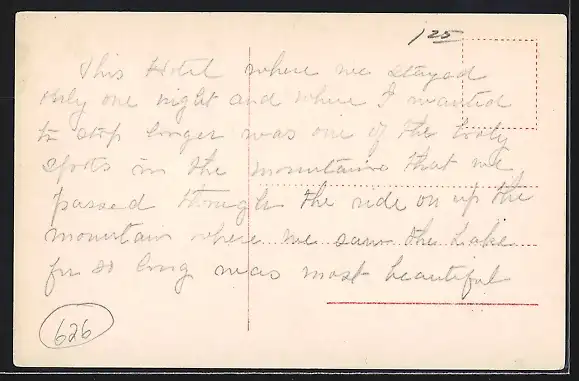 125
This Hotel where we stayed
only one night and where I wanted
to stop longer was one of the only
spots in the mountains that we
passed though the ride on up the
mountain where we saw the Lake
for so long was most beautiful
626